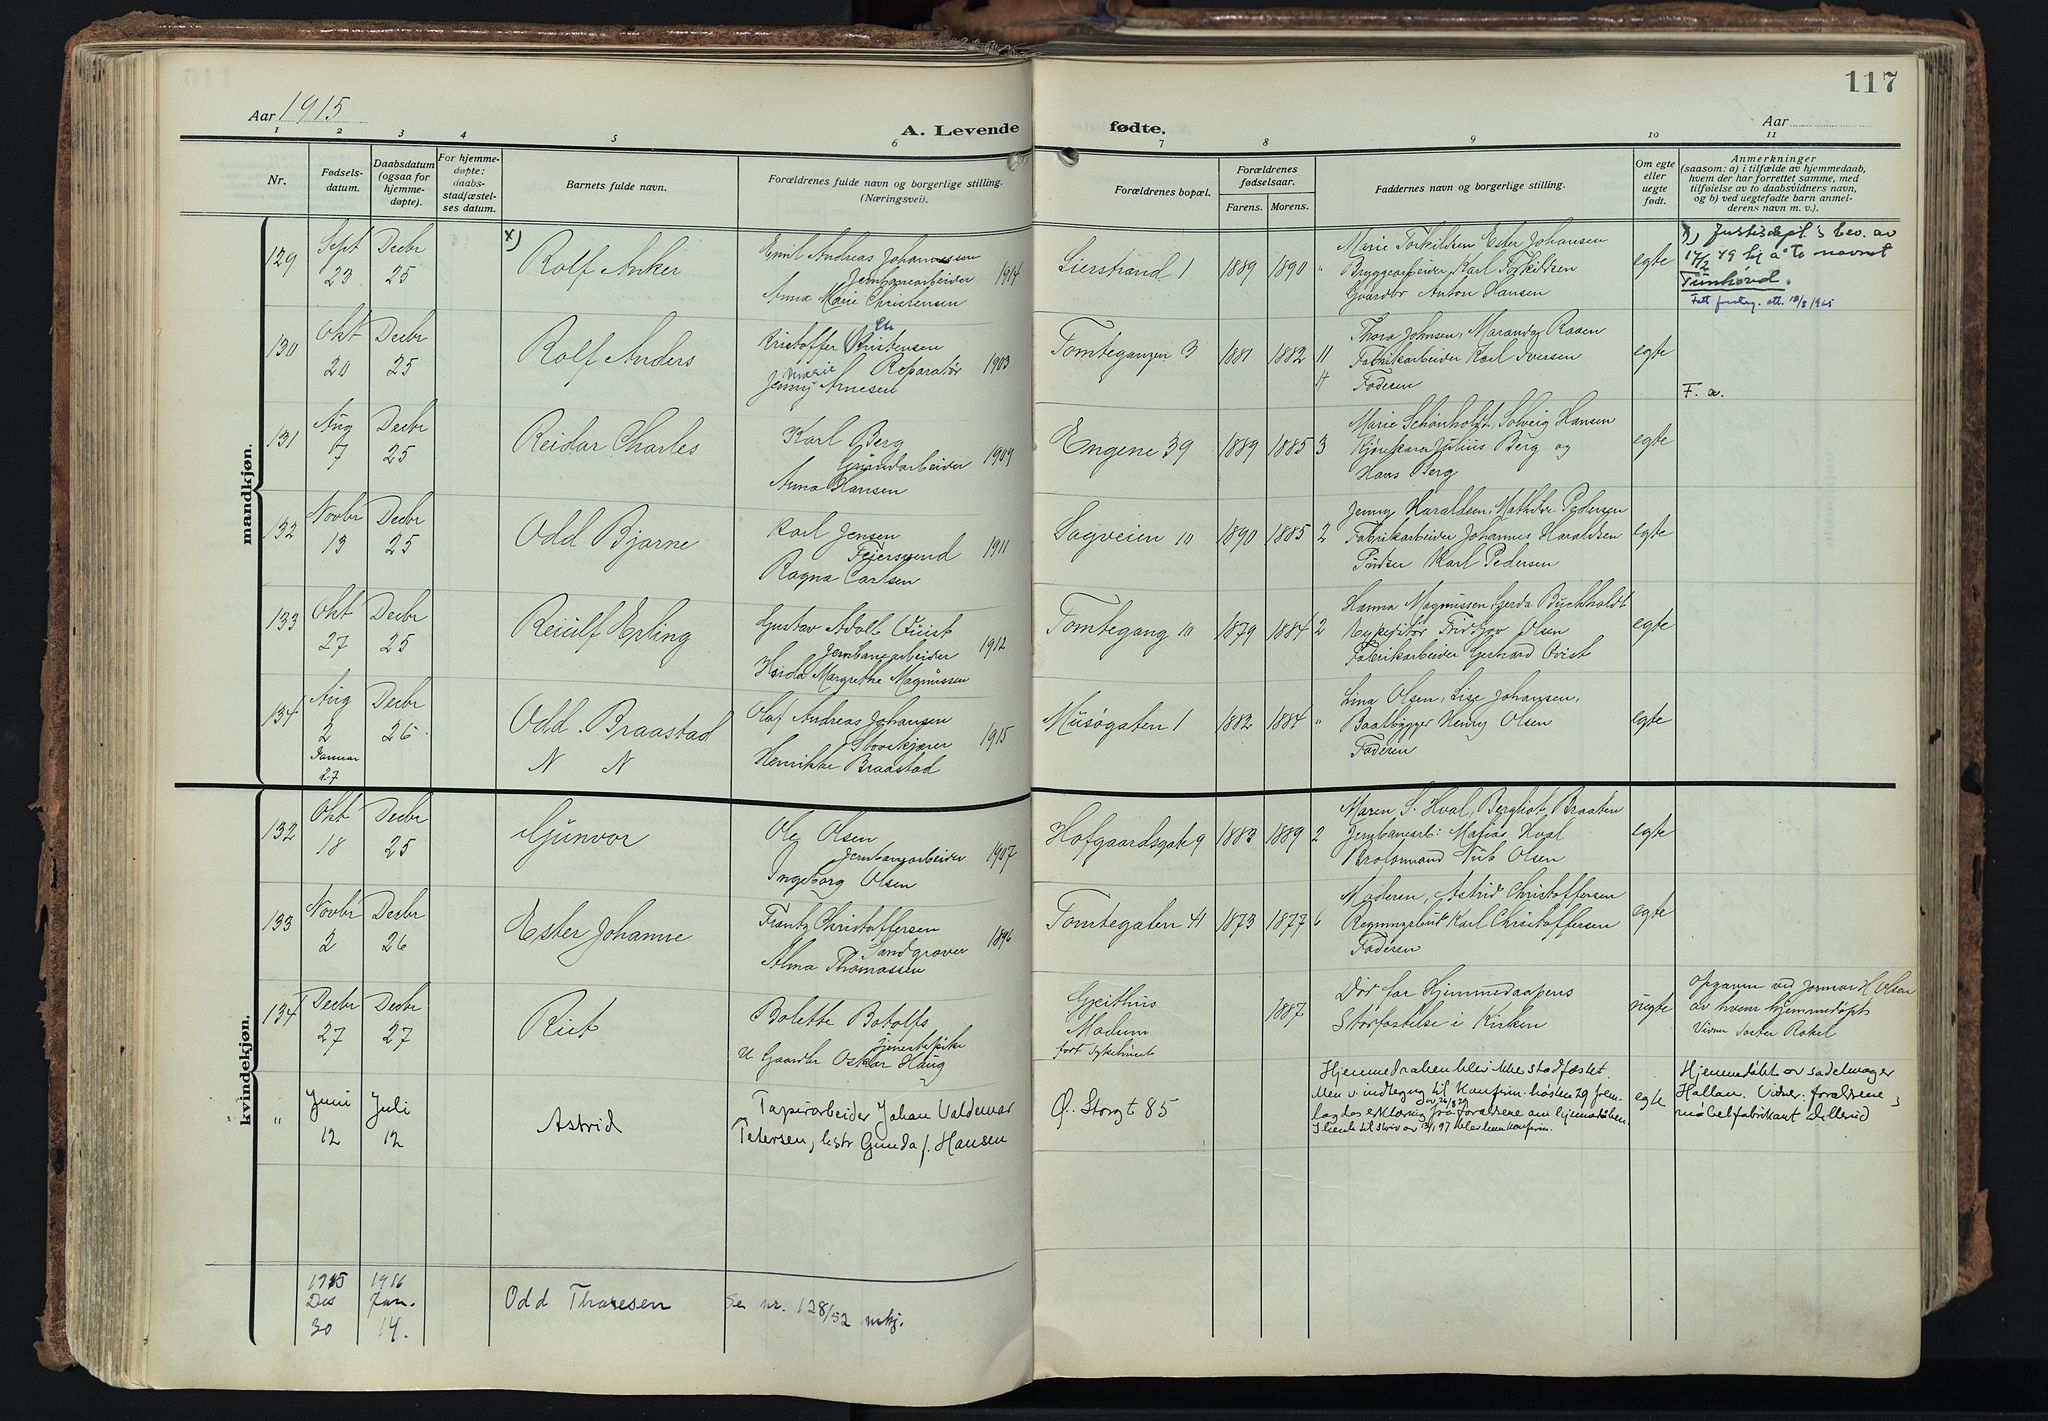 117
Aar 1915
A. Levende
fødte.
Aar
1 2 3 4 5 6 7 8 9 10 11
Nr.
Fødsels-
datum.
Daabsdatum
(ogsaa for
hjemme-
døpte).
For hjemme-
døpte:
daabs-
stadfæstel-
ses datum.
Barnets fulde navn.
Forældrenes fulde navn og borgerlige stilling.
(Næringsvei).
Forældrenes bopæl.
Forældrenes
fødselsaar.
Farens. Morens.
Faddernes navn og borgerlige stilling.
Om egte
eller
uegte
født.
Anmerkninger
(saasom: a) i tilfælde av hjemmedaab,
hvem der har forrettet samme, med
tilføielse av to daabsvidners navn,
og b) ved uegtefødte barn anmel-
derens navn m. v.).
mandkjøn.
129
Sept
23
Decbr
25
x)
Rolf Anker
Emil Andreas Johannessen
Jernbanearbeider
Anna Marie Christensen
1914
Lierstrand 1
1889 1890 "
Marie Torkildsen Ester Johansen
Bryggearbeider Karl Torkildsen
Gaardbr Anton Hansen
egte
x) Justisdept's bev. av
17/2 49 til å ta navnet
130
Okt
20
Decbr
25
Rolf Anders
Kristoffer Kristensen
Ch
Reparatør
Marie
Jenny Arnesen
1903
Tomtegangen 3
1881 1882 11
4
Thora Johnsen, Marander Raaen
Fabrikarbeider Karl Iversen
Faderen
egte
F. a.
131
Aug
7
Decbr
25
Reidar Charles
Karl Berg
Grundarbeider
Anna Hansen
1909
Engene 39
1889 1885 3
Marie Schønholdt, Solveig Hansen
Kjørekarer Julius Berg og
Hans Berg
egte
132
Novbr
13
Decbr
25
Odd Bjarne
Karl Jensen
Feiersvend
Ragna Carlsen
1911
Sagveien 10
1890 1885 2
Jenny Haraldsen, Mathilde Pedersen
Fabrikarbeider Johannes Haraldsen
Pudser Karl Pedersen
egte
133
Okt
27
Decbr
25
Reiulf Erling
Gustav Adolf Quist
Jernbanearbeider
Herda Margrethe Magnussen
1912
Tomtegang 10
1879 1884 2
Hanna Magnussen, Gerda Buckholdt
Expeditør Fridtjov Olsen
Fabrikarbeider Gerhard Qvist
egte
134
Aug
2
Januar
27
Decbr
26
Odd Braastad
N N
Olaf Andreas Johansen
Storekjører
Henrikke Braastad
1915
Musøgaten 1
1882 1884 "
Lina Olsen, Lise Johansen,
Baatbygger Henry Olsen
Faderen
egte
kvindekjøn.
132
Okt
18
Decbr
25
Gunvor
Ole Olsen
Jernbanearbeider
Ingeborg Olsen
1907
Hofgaardsgate 9
1883 1889 2
Maren S. Hval, Bergliot Braaten
Jernbanearb: Matias Hval
Brolsmand Nub Olsen
egte
133
Novbr
2
Decbr
26
Ester Johanne
Frantz Christoffersen
Sandgraver
Alma Thomassen
1896
Tomtegaten 41
1873 1877 6
Moderen, Astrid Christoffersen
Regningsbud Karl Christoffersen
Faderen
egte
134
Decbr
27
Decbr
27
Rut
Bolette Botolfs
tjenestepike
U Gaardbr Oskar Haug
Gjeithus
Modum
fort Sykehuset
1887
Død før Hjemmedaapens
Stadfæstelse i Kirken
uegte
Opgaven ved jormor H Olsen
av hvem hjemmedøpt
"
Juni
12
Juli
12
Astrid
Papirarbeider Johan Valdemar
Petersen, hustr Gunda f. Hansen
Ø. Storgt 85
Hjemmedaaben blev ikke stadfæstet.
Men v. indtegng til konfirm. høsten 29 frem-
lagdes erklæring fra forældrene om hjemmedåben.
egte
Hjemmedøbt av sadelmager
Hallan. Vidner: forældrene,
møbelfabrikant Lillerud
1915
Des
30
1916
Jan.
14.
Odd Thoresen
Se nr. 128/52 mkj.